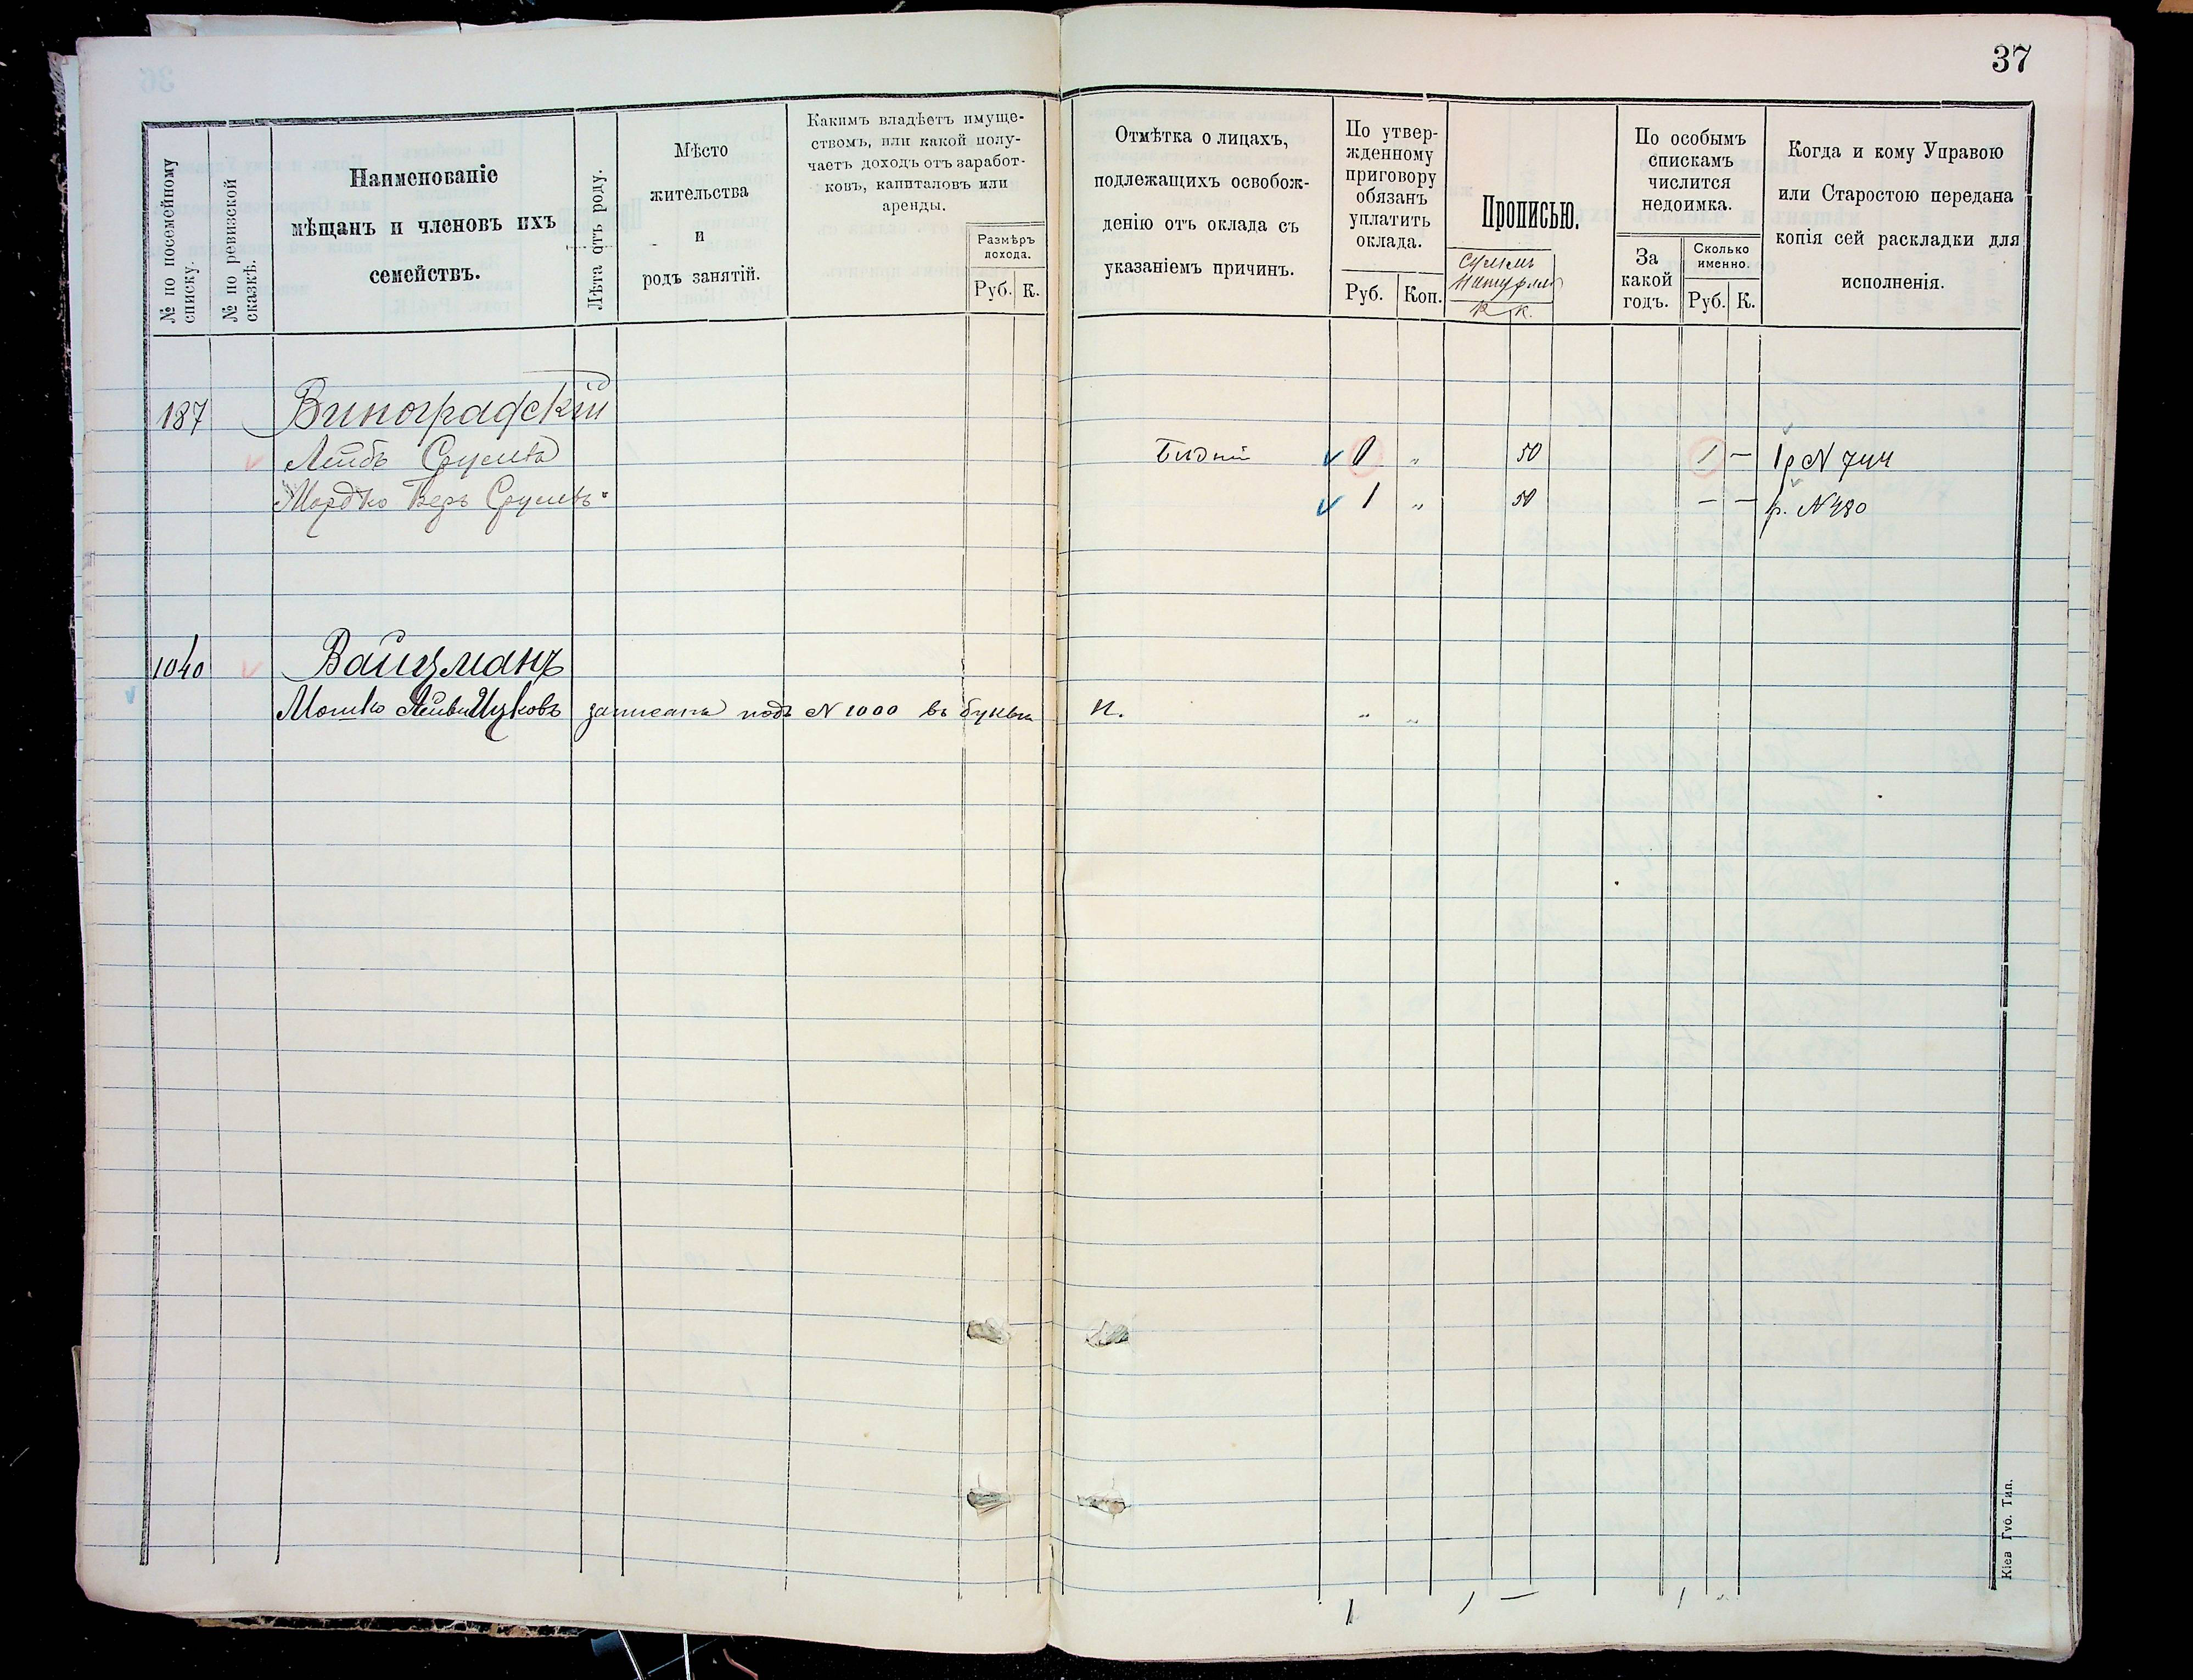 37
№ по посемейному списку.
№ по ревизской сказкѣ.
Наименованіе
мѣщанъ и членовъ ихъ
семействъ.
Лѣта отъ роду.
Мѣсто
жительства
и
родъ занятій.
Какимъ владѣетъ имуще-
ствомъ, или какой полу-
чаетъ доходъ отъ заработ-
ковъ, капиталовъ или
аренды.
Размѣръ
дохода.
Руб. К.
Отмѣтка о лицахъ,
подлежащихъ освобож-
денію отъ оклада съ
указаніемъ причинъ.
По утвер-
жденному
приговору
обязанъ
уплатить
оклада.
Руб. Коп.
Прописью.
К.
По особымъ
спискамъ
числится
недоимка.
За
какой
годъ.
Сколько
именно.
Руб. К.
Когда и кому Управою
или Старостою передана
копія сей раскладки для
исполненія.
187 Виноградскій
Лейбъ Срулевъ Бидній 0 „ 50 1 — 1р N 744
Мордко Беръ Срулевъ 1 „ 50 — — р. N 480
1040 Вайцманъ
Мошко Лейви Ицковъ записанъ подъ N 1000 въ буквы Н. „ „
1 1 — 1 „
Кіев Губ. Тип.